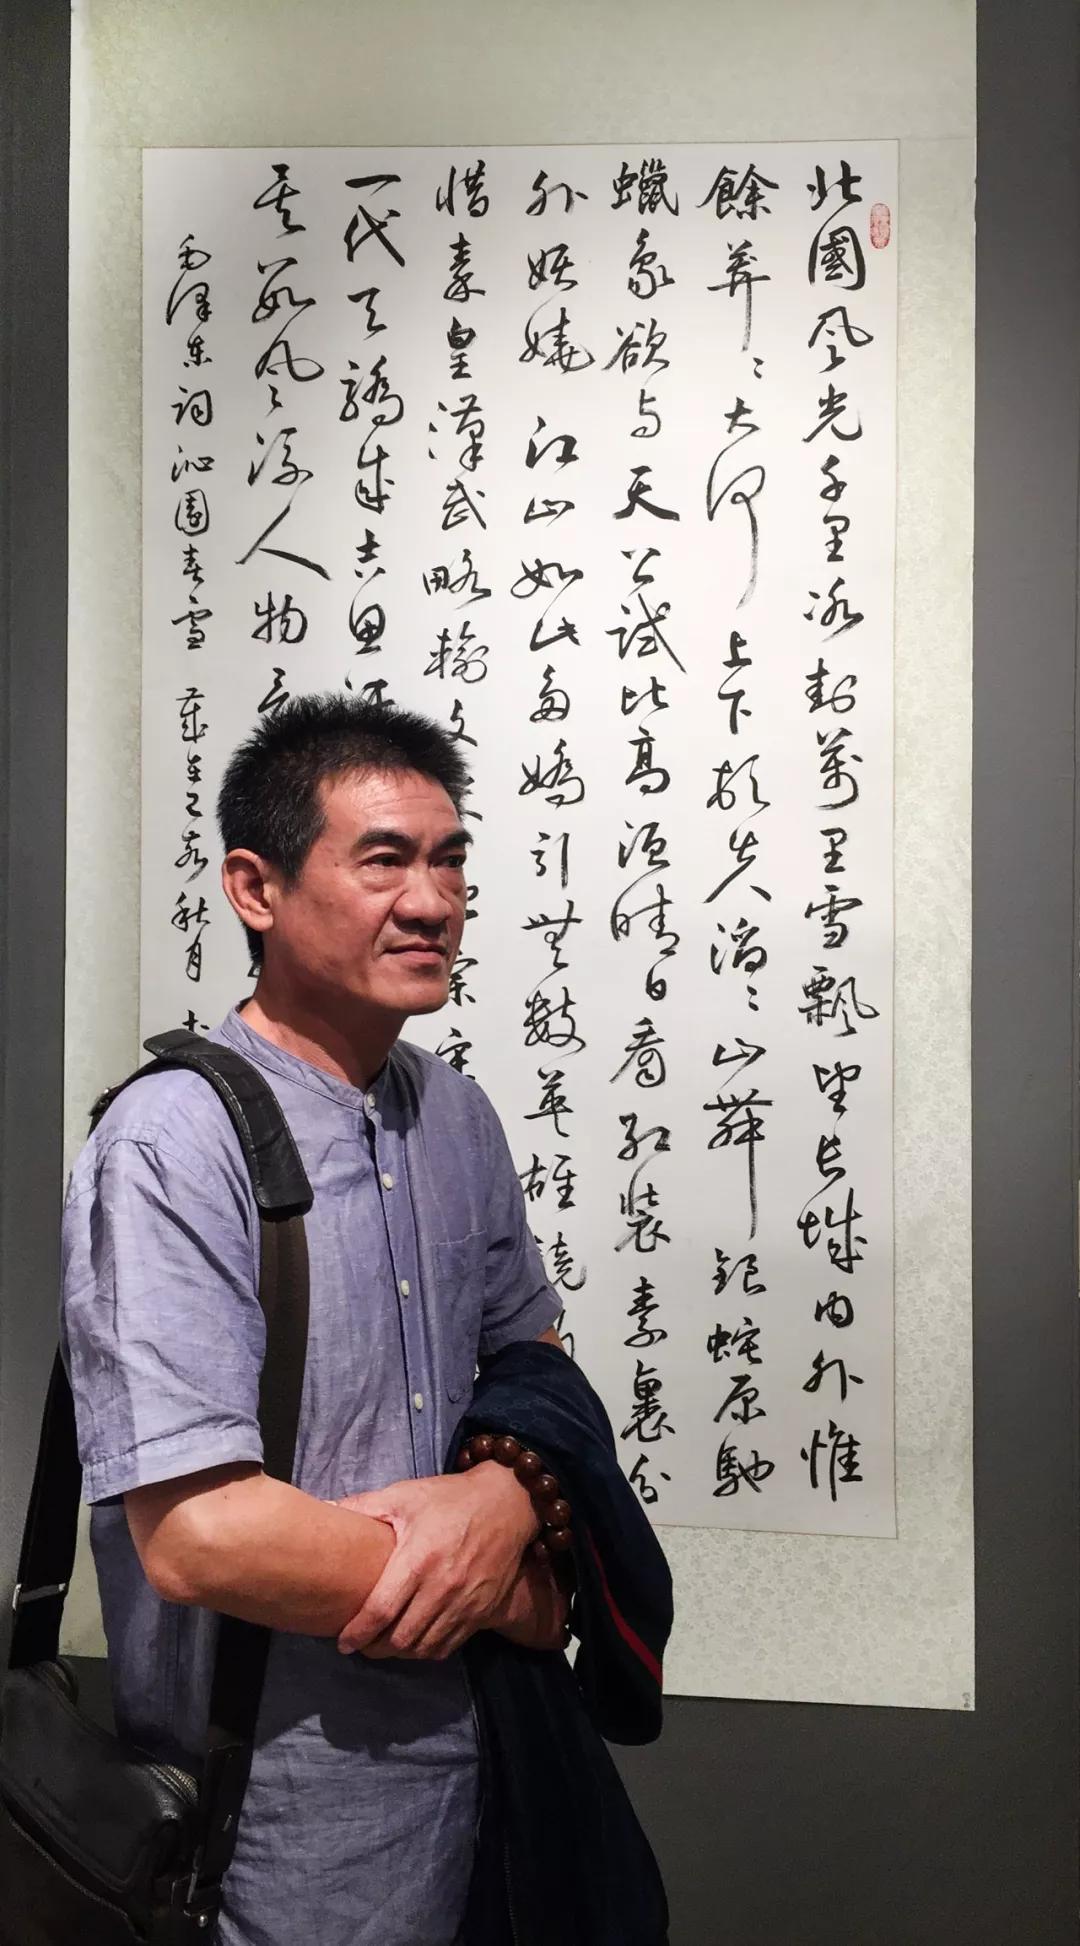 北國風光千里冰封萬里雪飄望長城内外惟
餘莽〻大河上下頓失滔〻山舞銀蛇原馳
蠟象欲与天公試比高須晴日看紅裝素裹分
外妖嬈江山如此多嬌引無數英雄競
惜秦皇漢武略輸文宗宋
一代天驕成吉思汗
矣數風流人物
毛澤東詞沁園春雪 歲在己亥秋月